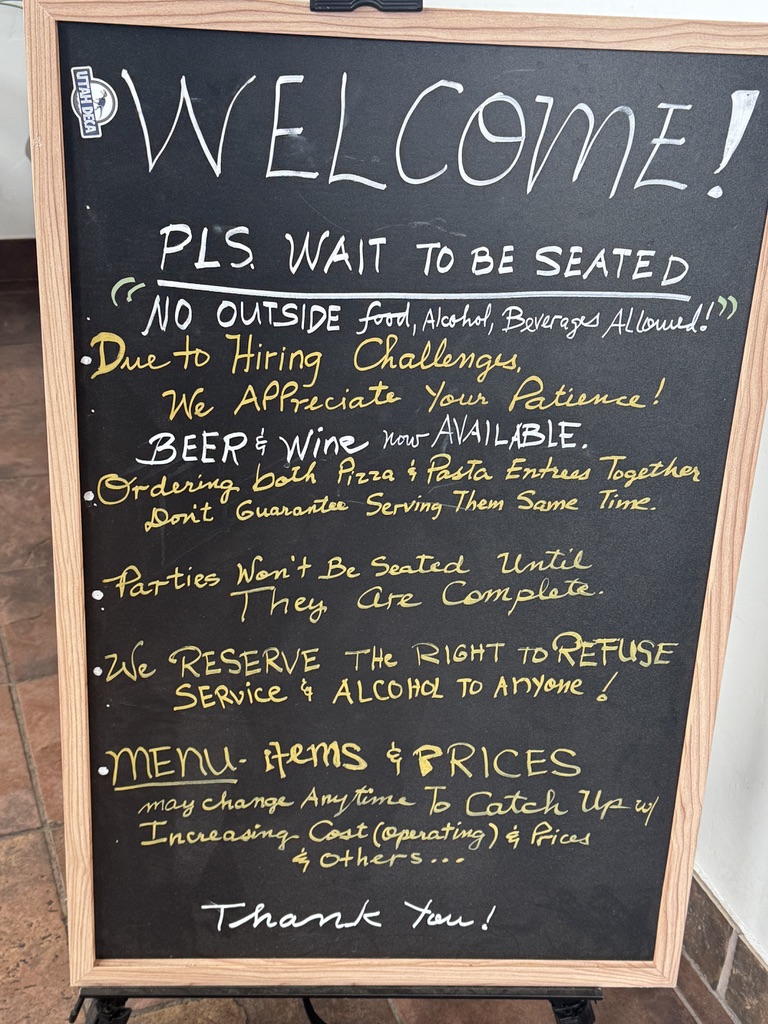 UTAH DECA
WELCOME!
PLS. WAIT TO BE SEATED
"NO OUTSIDE food, Alcohol, Beverages Allowed!"
• Due to Hiring Challenges,
We Appreciate Your Patience!
BEER & Wine now AVAILABLE.
• Ordering both Pizza & Pasta Entrees Together
Don't Guarantee Serving Them Same Time.
• Parties Won't Be Seated Until
They Are Complete.
• We RESERVE THE RIGHT TO REFUSE
SERVICE & ALCOHOL TO ANYONE!
• MENU- items & PRICES
may change Anytime To Catch Up w/
Increasing Cost (operating) & Prices
& Others...
Thank You!